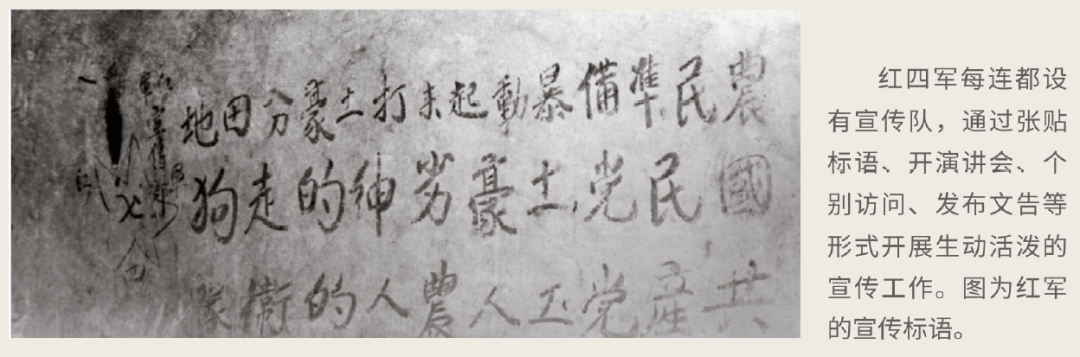 農民準備暴動起来打土豪分田地
國民党土豪劣紳的走狗
共產党工人農人的衛隊
红四军每连都设
有宣传队，通过张贴
标语、开演讲会、个
别访问、发布文告等
形式开展生动活泼的
宣传工作。图为红军
的宣传标语。